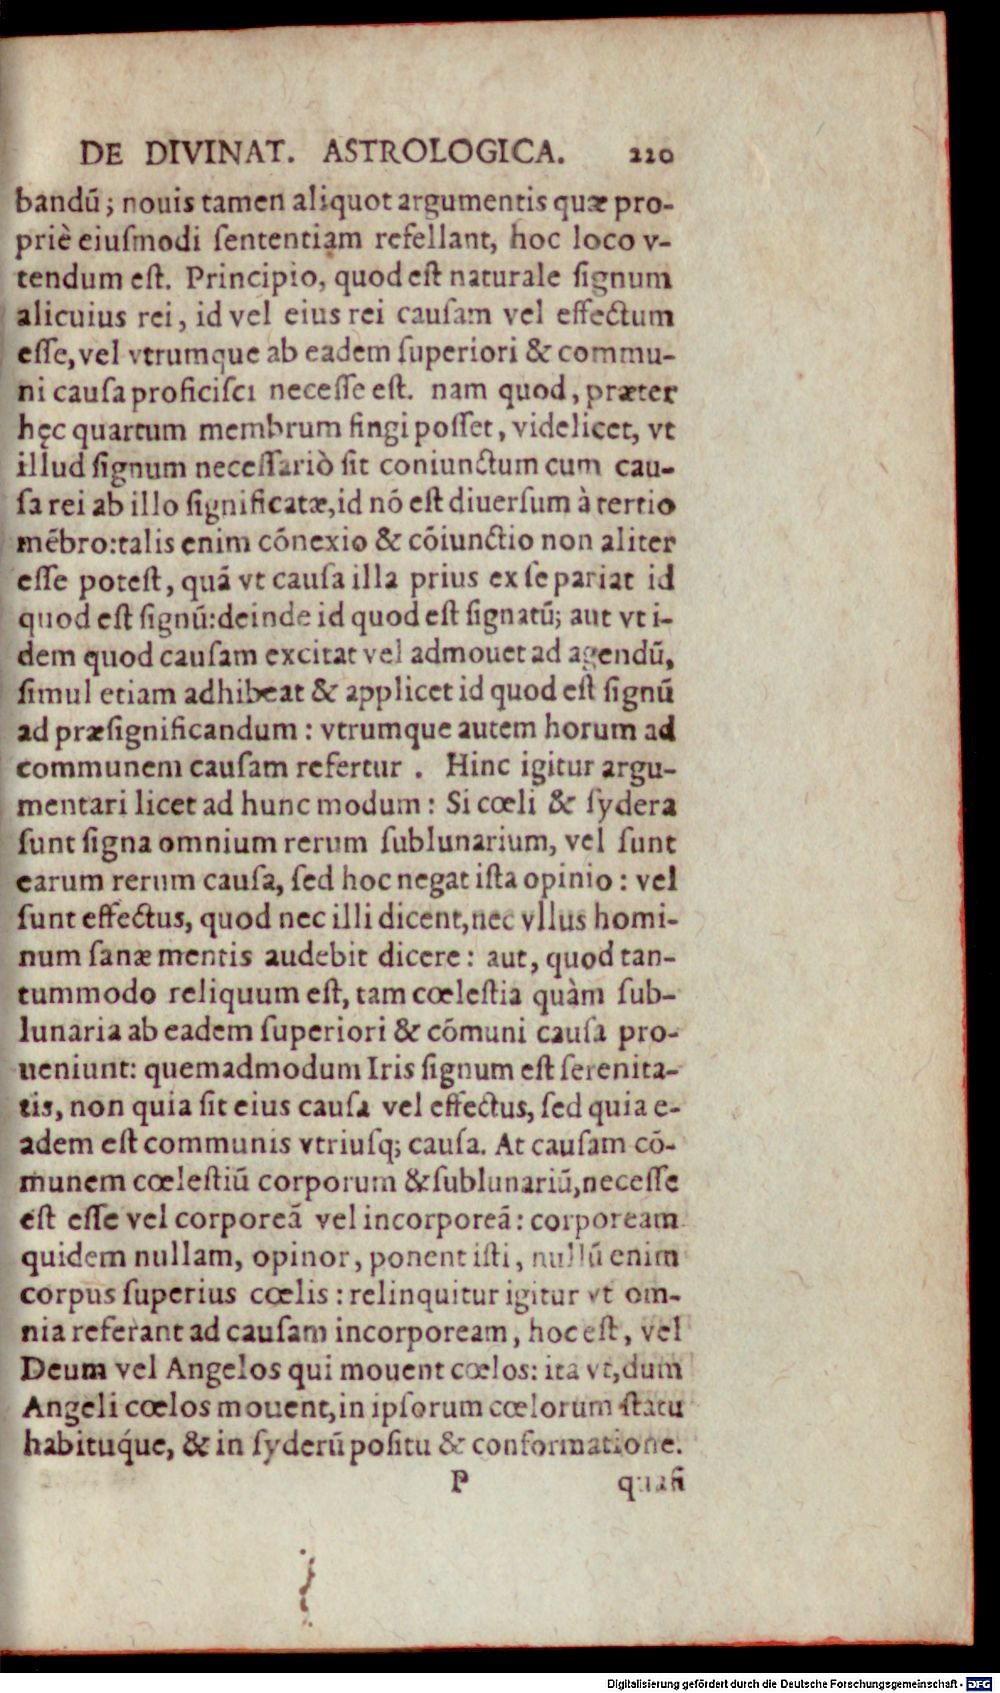 DE DIVINAT. ASTROLOGICA. 220
bandū; nouis tamen aliquot argumentis quæ pro-
priè eiuſmodi ſententiam refellant, hoc loco v-
tendum eſt. Principio, quod eſt naturale ſignum
alicuius rei, id vel eius rei cauſam vel effectum
eſſe, vel vtrumque ab eadem ſuperiori & commu-
ni cauſa proficiſci neceſſe eſt. nam quod, præter
hęc quartum membrum fingi poſſet, videlicet, vt
illud ſignum neceſſariò ſit coniunctum cum cau-
ſa rei ab illo ſignificatæ, id nō eſt diuerſum à tertio
mēbro: talis enim cōnexio & cōiunctio non aliter
eſſe poteſt, quā vt cauſa illa prius ex ſe pariat id
quod eſt ſignū: deinde id quod eſt ſignatū; aut vt i-
dem quod cauſam excitat vel admouet ad agendū,
ſimul etiam adhibeat & applicet id quod eſt ſignū
ad præſignificandum: vtrumque autem horum ad
communem cauſam refertur. Hinc igitur argu-
mentari licet ad hunc modum: Si cœli & ſydera
ſunt ſigna omnium rerum ſublunarium, vel ſunt
earum rerum cauſa, ſed hoc negat iſta opinio: vel
ſunt effectus, quod nec illi dicent, nec vllus homi-
num ſanæ mentis audebit dicere: aut, quod tan-
tummodo reliquum eſt, tam cœleſtia quàm ſub-
lunaria ab eadem ſuperiori & cōmuni cauſa pro-
ueniunt: quemadmodum Iris ſignum eſt ſerenita-
tis, non quia ſit eius cauſa vel effectus, ſed quia e-
adem eſt communis vtriuſq; cauſa. At cauſam cō-
munem cœleſtiū corporum & ſublunariū, neceſſe
eſt eſſe vel corporeā vel incorporeā: corpoream
quidem nullam, opinor, ponent iſti, nullū enim
corpus ſuperius cœlis: relinquitur igitur vt om-
nia referant ad cauſam incorpoream, hoc eſt, vel
Deum vel Angelos qui mouent cœlos: ita vt, dum
Angeli cœlos mouent, in ipſorum cœlorum ſtatu
habitúque, & in ſyderū poſitu & conformatione.
P quaſi
Digitalisierung gefördert durch die Deutsche Forschungsgemeinschaft - DFG